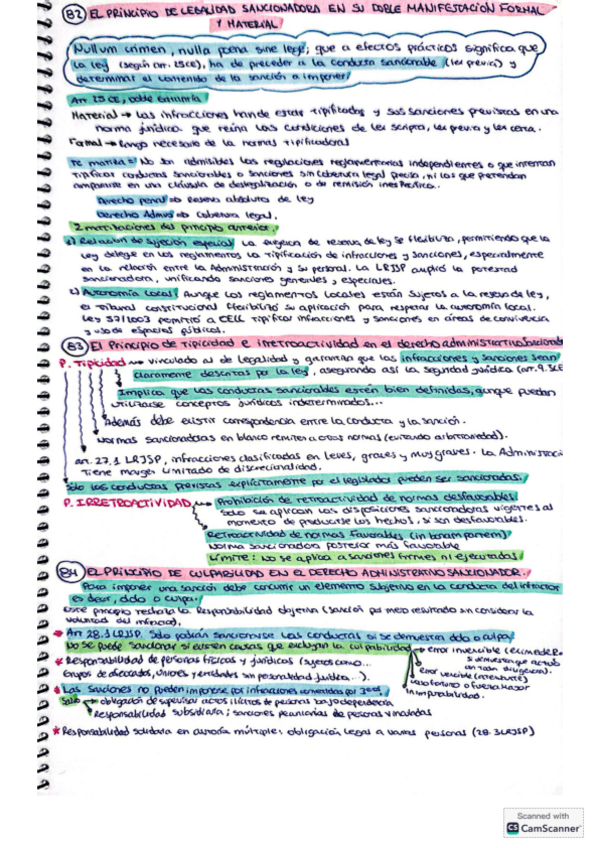 82 EL PRINCIPIO DE LEGALIDAD SANCIONADORA EN SU DOBLE MANIFESTACIÓN FORMAL
Y MATERIAL
Nullum crimen, nulla poena sine lege; que a efectos prácticos significa que
la ley (según arr. 25CE), ha de preceder a la conducta sancionable (lex previa) y
determinar el contenido de la sanción a imponer
Art 25 CE, doble garantía
Material → Las infracciones han de estar tipificadas y sus sanciones previstas en una
norma jurídica que reúna las condiciones de lex scripta, lex previa y lex certa.
Formal → Rango necesario de la normas tipificadoras
No son admisibles las regulaciones reglamentarias independientes o que intentan
tipificar conductas sancionables o sanciones sin cobertura legal precisa, ni las que pretendan
ampararse en una cláusula de deslegalización o de remisión inespecífica..
Derecho penal ⇒ Reserva absoluta de ley
Derecho Admvo ⇒ Cobertura legal.
2 matizaciones del principio anterior.
1) Relación de sujeción especial La exigencia de reserva de ley se flexibiliza, permitiendo que la
ley delegue en los reglamentos la tipificación de infracciones y sanciones, especialmente
en la relación entre la Administración y su personal. La LRJSP amplió la potestad
sancionadora, unificando sanciones generales y especiales.
2) Autonomía local: Aunque los reglamentos locales están sujetos a la reserva de ley,
el Tribunal constitucional flexibilizó su aplicación para respetar la autonomía local.
Ley 57/2003 permitió a CELL tipificar infracciones y sanciones en áreas de convivencia
y uso de espacios públicos.
83 EL Principio de tipicidad e irretroactividad en el derecho administrativo sancionador
P. Tipicidad → vinculado al de legalidad y garantiza que las infracciones y sanciones sean
claramente descritas por la ley, asegurando así la seguridad jurídica (art. 9.3CE
Implica que las conductas sancionables estén bien definidas, aunque puedan
utilizarse conceptos jurídicos indeterminados...
Además debe existir correspondencia entre la conducta y la sanción.
Normas sancionadoras en blanco remiten a otras normas (evitando arbitrariedad).
art. 27.1 LRJSP, infracciones clasificadas en leves, graves y muy graves. La Administraci
Tiene margen limitado de discrecionalidad.
Solo las conductas previstas explícitamente por el legislador pueden ser sancionadas.
P. IRRETROACTIVIDAD → Prohibición de retroactividad de normas desfavorables.
Solo se aplican las disposiciones sancionadoras vigentes al
momento de producirse los hechos, si son desfavorables.
Retroactividad de normas favorables (in bonam partem)
Norma sancionadora posterior más favorable
Límite: No se aplica a sanciones firmes ni ejecutadas.
84 EL PRINCIPIO DE CULPABILIDAD EN EL DERECHO ADMINISTRATIVO SANCIONADOR.
Para imponer una sanción debe concurrir un elemento subjetivo en la conducta del infractor
es decir, dolo o culpa.
Este principio rechaza la Responsabilidad objetiva (sanción por mero resultado sin considerar la
voluntad del infractor).
★ Art 28.1 LRJSP. Solo podrán sancionarse las conductas si se demuestra dolo o culpa.
No se puede sancionar si existen causas que excluyan la culpabilidad → error invencible
si demuestra que actuó
con toda diligencia).
Error vencible (atenuante)
Caso fortuito o fuerza mayor
Inimputabilidad.
★ Responsabilidad de personas físicas y jurídicas (sujetos como...
Grupos de afectados, uniones y entidades sin personalidad jurídica...).
★ Las sanciones no pueden imponerse por infracciones cometidas por 3eros
Salvo → obligación de supervisar actos ilícitos de personas bajo dependencia
Responsabilidad subsidiaria; sanciones pecuniarias de personas vinculadas
★ Responsabilidad solidaria en autoría múltiple: obligación legal a varias personas (28.3 LRJSP)
Scanned with
CS CamScanner